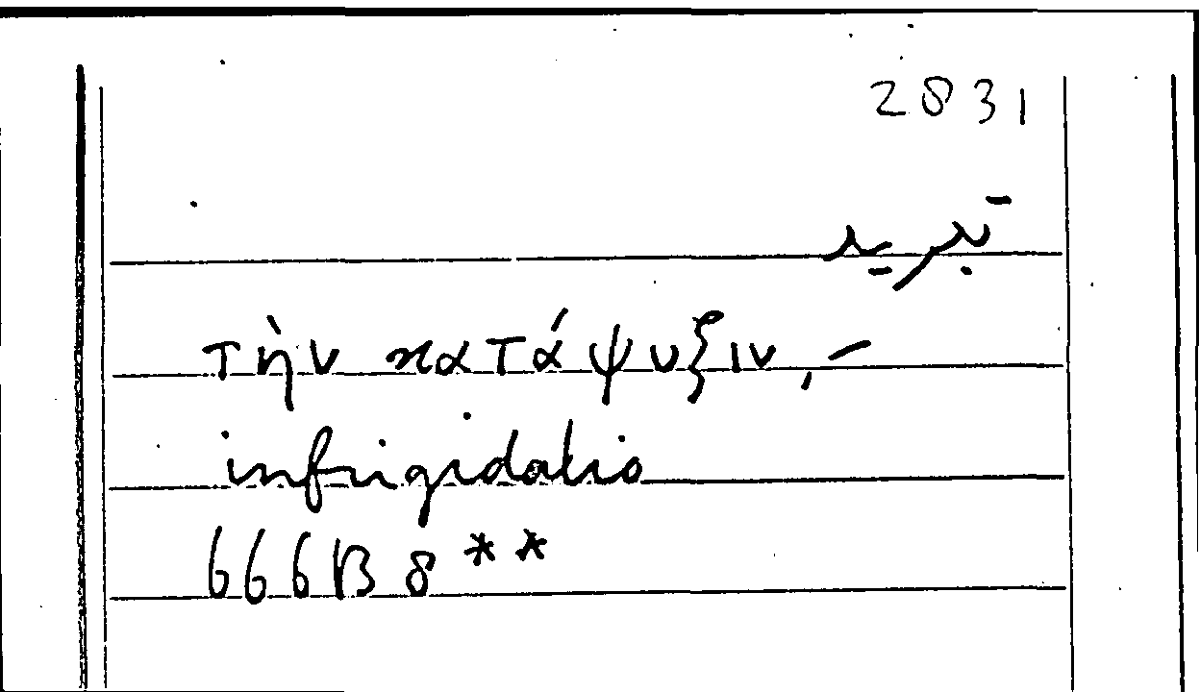 2831
تبريد
τὴν κατάψυξιν, –
infrigidatio
666B8**